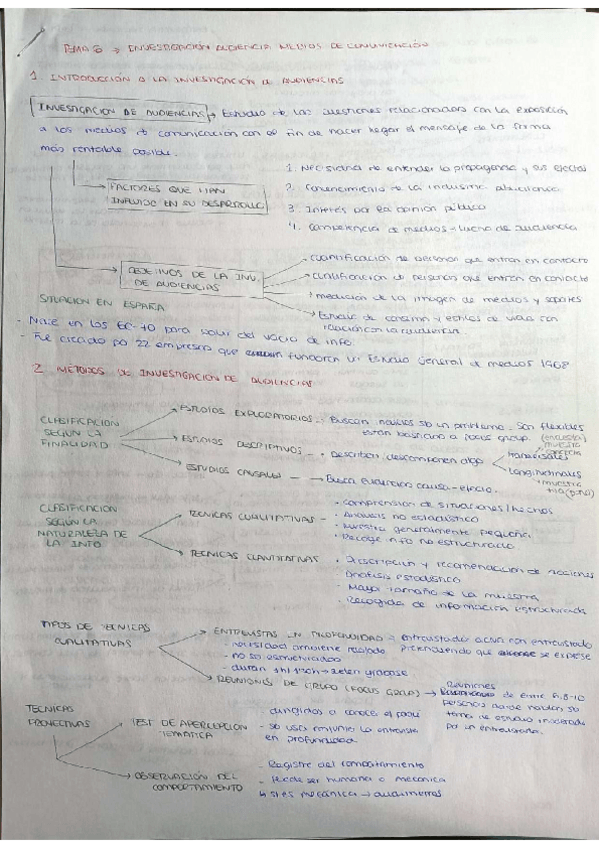 TEMA 6 → INVESTIGACIÓN AUDIENCIA MEDIOS DE COMUNICACIÓN
1. INTRODUCCIÓN A LA INVESTIGACIÓN DE AUDIENCIAS
INVESTIGACION DE AUDIENCIAS → Estudio de las cuestiones relacionadas con la exposición
a los medios de comunicación con el fin de hacer llegar el mensaje de la forma
más rentable posible.
FACTORES QUE HAN
INFLUIDO EN SU DESARROLLO
1. Necesidad de entender la propaganda y sus efectos
2. Conocimiento de la industria
3. Interés por la opinión pública
4. Competencia de medios = lucha de audiencia
OBJETIVOS DE LA INV.
DE AUDIENCIAS
- cuantificación de personas que entran en contacto
- cualificación de personas que entran en contacto
- medición de la imagen de medios y soportes
- Estudio de consumo y estilos de vida con
relación con la audiencia
SITUACION EN ESPAÑA
- Nace en los 60-70 para salir del vacio de info.
- Fue creado por 22 empresas que fundaron un Estudio General de medios 1968
2. METODOS DE INVESTIGACION DE AUDIENCIAS
CLASIFICACION
SEGUN LA
FINALIDAD
ESTUDIOS EXPLORATORIOS - Buscan sb un problema. Son flexibles
están basados a focus group.
ESTUDIOS DESCRIPTIVOS - Describen descomponen algo
(encuesta)
muestra
Transversales
Longitudinales
muestra
fija
ESTUDIOS CAUSALES - Busca causa-efecto.
CLASIFICACION
SEGUN LA
NATURALEZA DE
LA INFO
TECNICAS CUALITATIVAS -
- comprension de situaciones / hechos
- Analisis no estadístico
- Muestra generalmente pequeña
- Recoge info no estructurada
TECNICAS CUANTITATIVAS
- Descripcion y recomendacion de acciones
- Analisis estadístico
- Mayor tamaño de la muestra
- Recogida de informacion estructurada
TIPOS DE TECNICAS
CUALITATIVAS
ENTREVISTAS EN PROFUNDIDAD = entrevistador actua con entrevistado
pretendiendo que se exprese
- necesidad ambiente relajado
- no son estructuradas
- duran 1h / 1'30h → suelen grabarse
REUNIONES DE GRUPO (FOCUS GROUP) → Reuniones
de entre 6, 8-10
personas donde hablan sb
tema de estudio moderado
por un entrevistador.
TECNICAS
PROYECTIVAS
TEST DE APERCEPCION
TEMATICA
- dirigidos a conocer el
- se usa la entrevista
en profundidad
OBSERVACION DEL
COMPORTAMIENTO
- Registro del comportamiento
- Puede ser humana o mecanica
↳ si es mecánica → audimetros